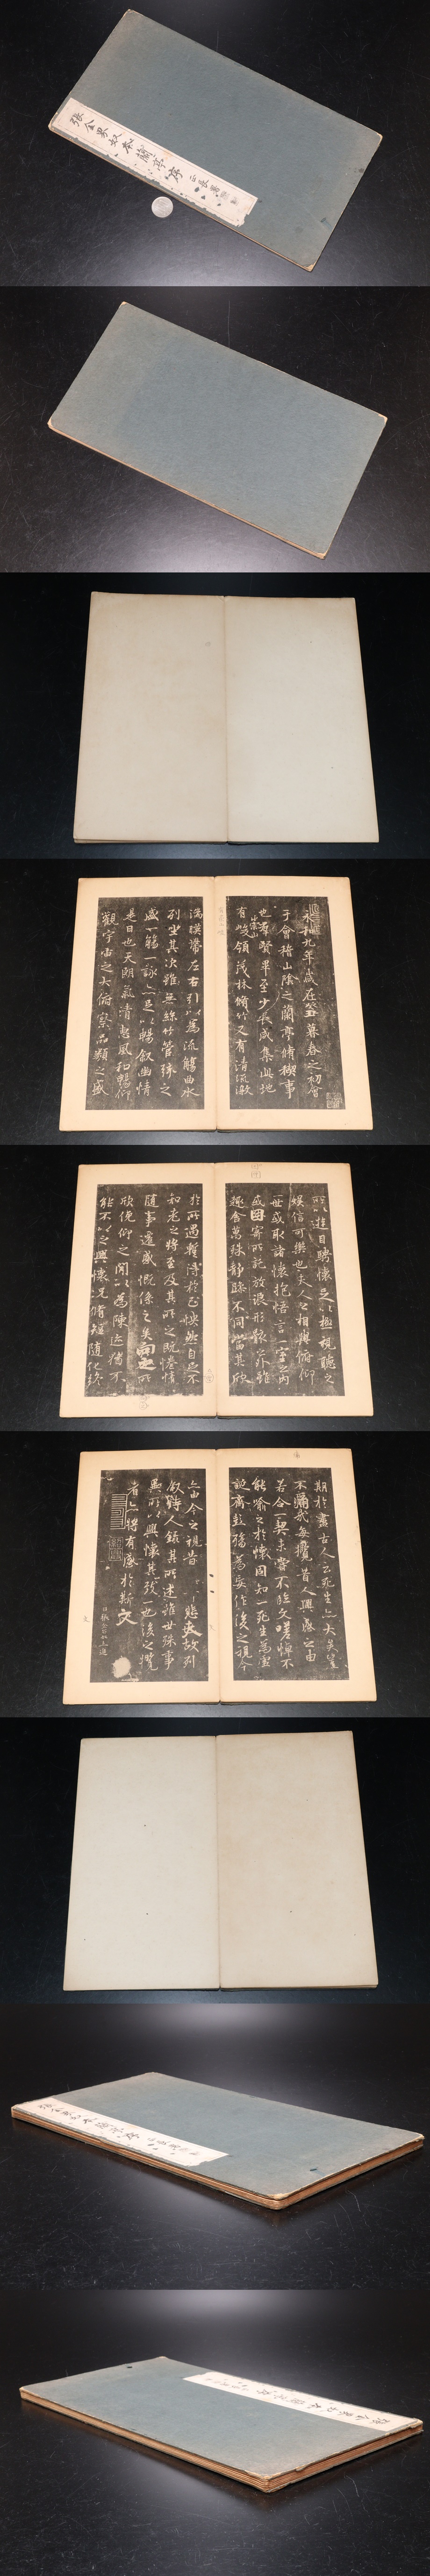 張金界奴本蘭亭序
永和九年歲在癸丑暮春之初會
于會稽山陰之蘭亭脩稧事
也羣賢畢至少長咸集此地
有崇山峻領茂林脩竹又有清流激
湍暎帶左右引以為流觴曲水
列坐其次雖無絲竹管弦之
盛一觴一詠亦足以暢叙幽情
是日也天朗氣清惠風和暢仰
觀宇宙之大俯察品類之盛
所以遊目騁懷足以極視聽之
娛信可樂也夫人之相與俯仰
一世或取諸懷抱悟言一室之內
或因寄所託放浪形骸之外雖
趣舍萬殊靜躁不同當其欣
於所遇蹔得於己怏然自足不
知老之將至及其所之既惓情
隨事遷感慨係之矣向之所
欣俛仰之間以為陳迹猶不
能不以之興懷況脩短隨化終
期於盡古人云死生亦大矣豈
不痛哉每攬昔人興感之由
若合一契未嘗不臨文嗟悼不
能喻之於懷固知一死生為虛
誕齊彭殤為妄作後之視今
亦由今之視昔悲夫故列
叙時人錄其所述雖世殊事
異所以興懷其致一也後之攬
者亦將有感於斯文
臣張金界奴上進